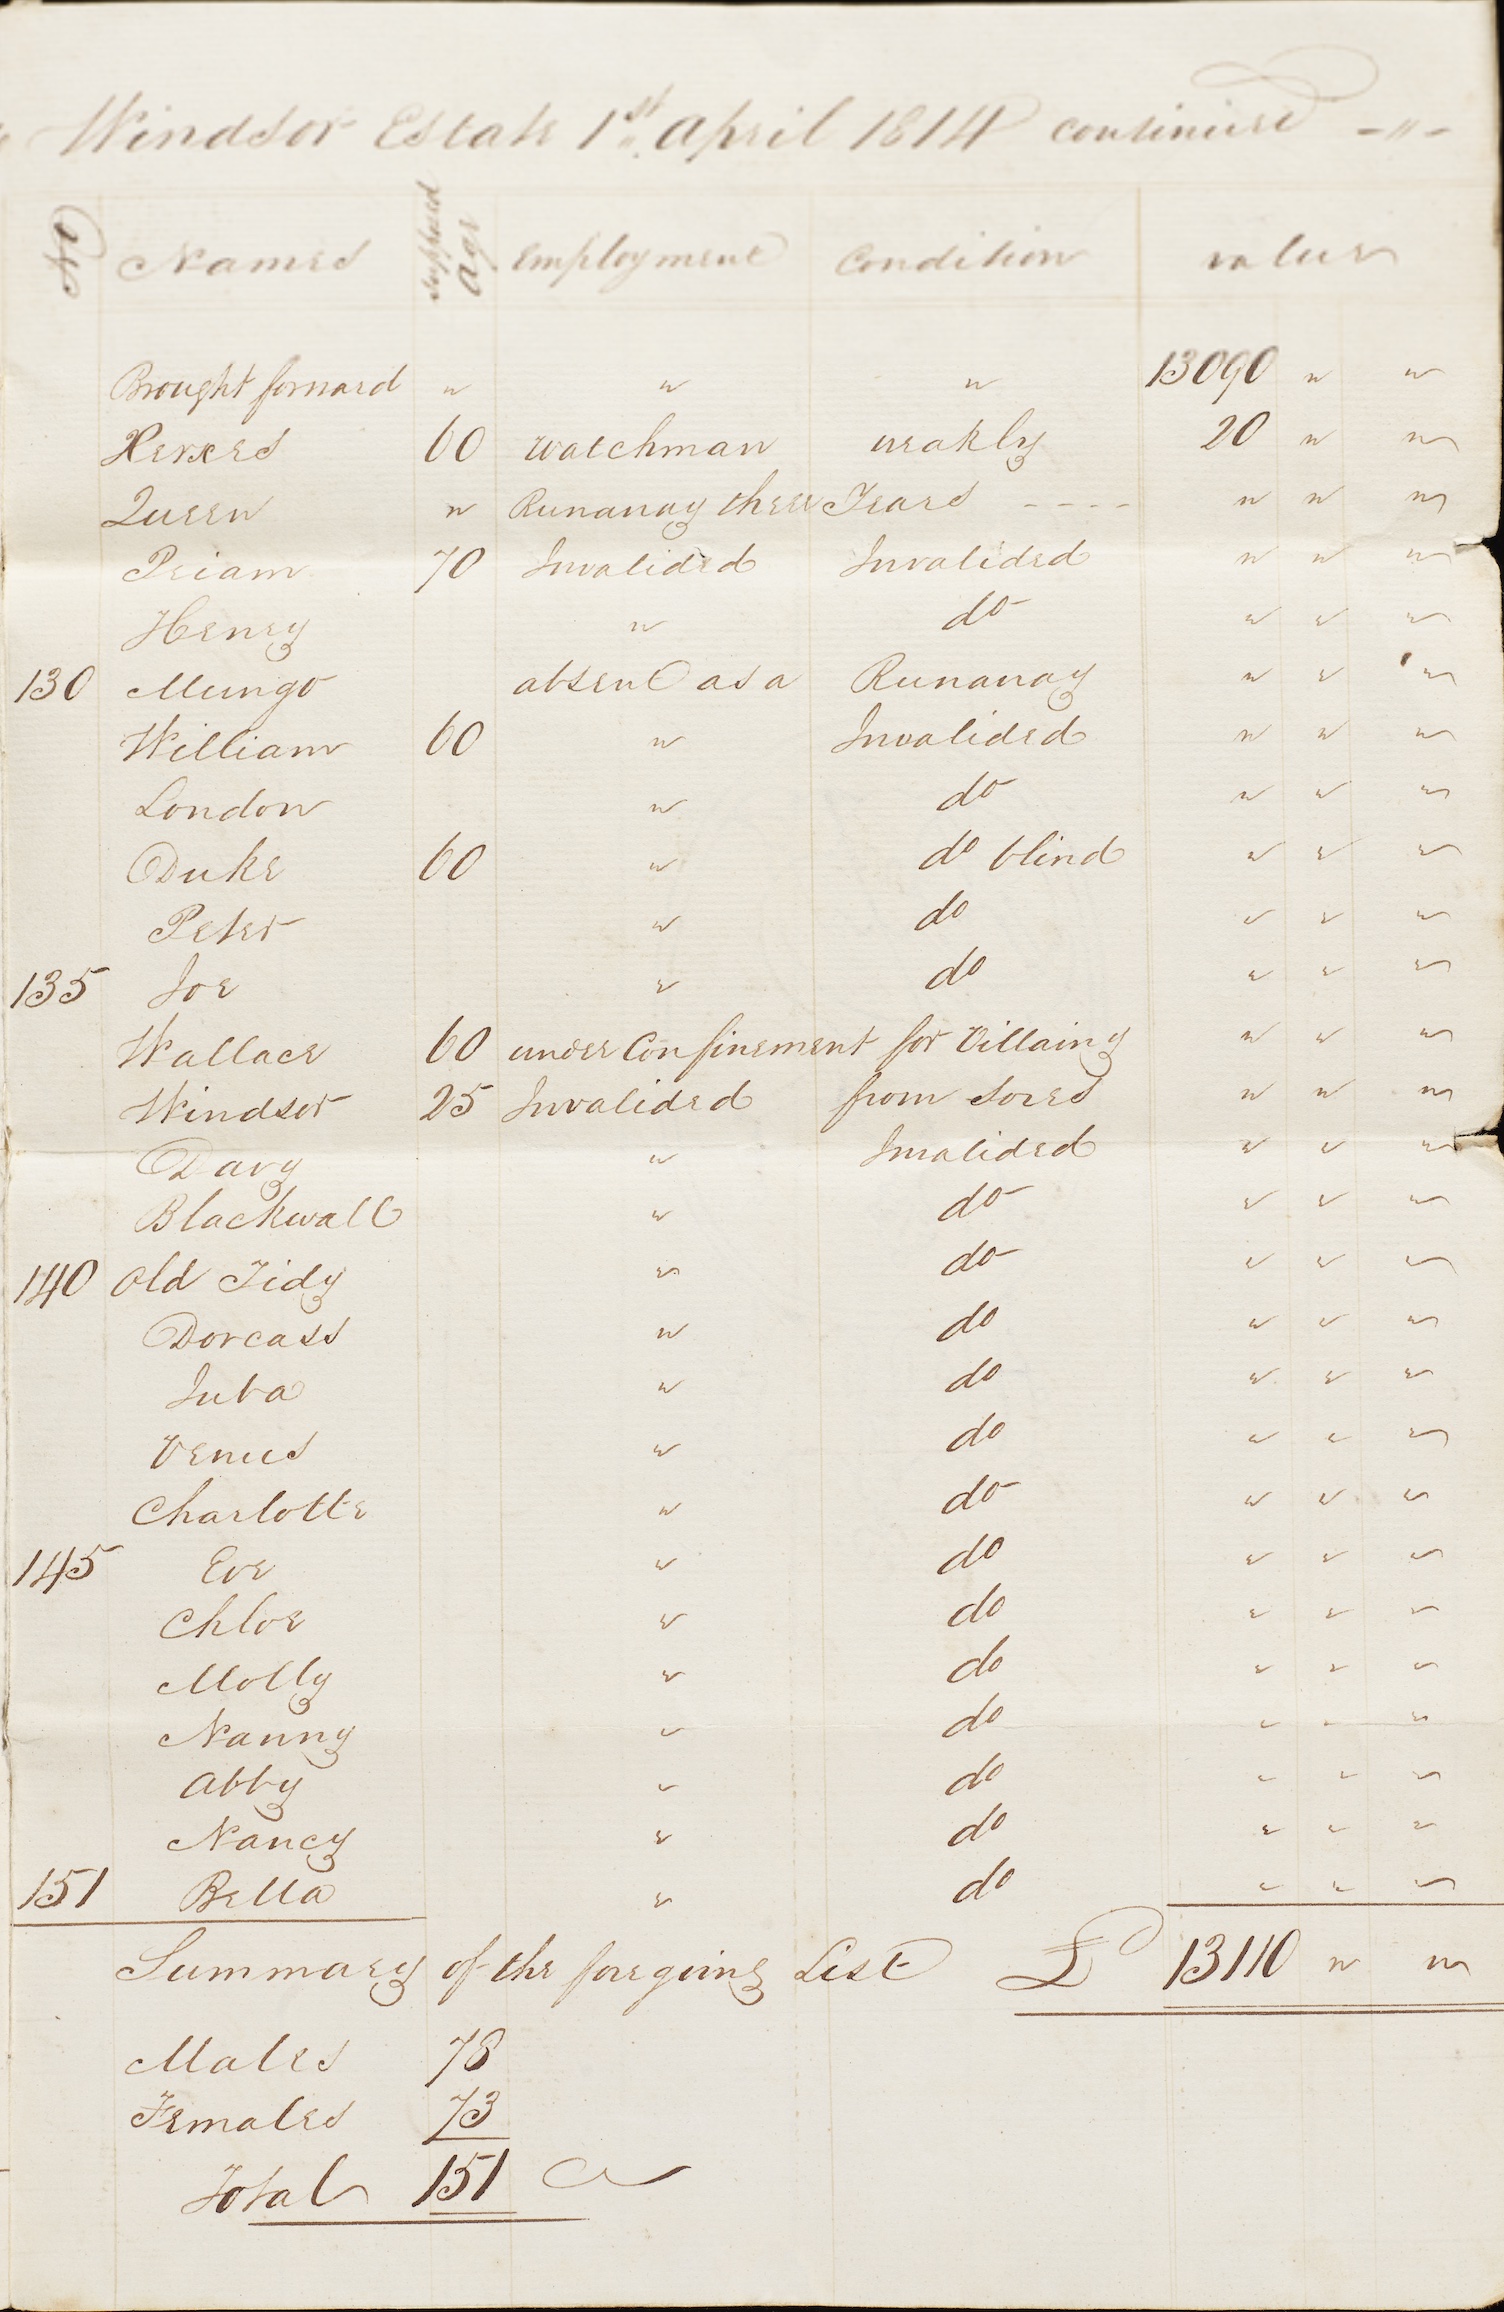 Windsor Estate 1st April 1814 continued -"-
No Names Supposed Age Employment Condition value
Brought forward " " " 13090 " "
Xerxes 60 watchman weakly 20 " "
Queen " Runaway three Years - - - - " " "
Priam 70 Invalided Invalided " " "
Henry " do " " "
130 Mungo absent as a Runaway " " "
William 60 " Invalided " " "
London " do " " "
Duke 60 " do blind " " "
Peter " do " " "
135 Joe " do " " "
Wallace 60 under Confinement for Villainy " " "
Windsor 25 Invalided from Sores " " "
Davy " Invalided " " "
Blackwall " do " " "
140 Old Tidy " do " " "
Dorcass " do " " "
Juba " do " " "
Venus " do " " "
Charlotte " do " " "
145 Eve " do " " "
Chloe " do " " "
Molly " do " " "
Nanny " do " " "
Abby " do " " "
Nancy " do " " "
151 Bella " do " " "
Summary of the foregoing List £ 13110 " "
Males 78
Females 73
Total 151